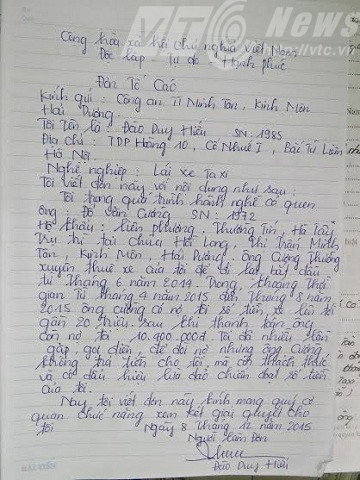 VTC News
http://vtc.vn
Cộng hòa xã hội chủ nghĩa Việt Nam
Độc lập tự do Hạnh phúc
Đơn Tố Cáo
Kính gửi : Công an TT Minh Tân, Kinh Môn
Hải Dương.
Tôi tên là : Đào Duy Hiếu SN : 1985
Địa chỉ : TDP Hoàng 10, Cổ Nhuế 1, Bắc Từ Liêm
Hà Nội.
Nghề nghiệp : Lái xe Taxi
Tôi viết đơn này với nội dung như sau :
Tôi trong quá trình hành nghề có quen
ông : Đỗ Văn Cường SN : 1972
Hộ khẩu : Liên phương, Thường Tín, Hà Tây
Trụ trì tại chùa Hời Long, Thị Trấn Minh
Tân, Kinh Môn, Hải Dương. Ông Cường thường
xuyên thuê xe của tôi để đi lại, bắt đầu
từ Tháng 6 năm 2014. Trong khoảng Thời
gian Từ tháng 4 năm 2015 đến tháng 8 năm
2015 ông Cường có nợ tôi số tiền xe lên tới
gần 20 triệu. Sau khi thanh toán ông
còn nợ tôi 10.400.000đ. Tôi đã nhiều lần
gặp, gọi điện, để đòi nợ nhưng ông Cường
không trả tiền cho tôi, mà còn thách thức
và có dấu hiệu lừa đảo chiếm đoạt số tiền
của tôi.
Nay tôi viết đơn này kính mong quý cơ
quan chức năng xem xét giải quyết cho
tôi Ngày 8 Tháng 12 năm 2015
Người làm đơn
Đào Duy Hiếu